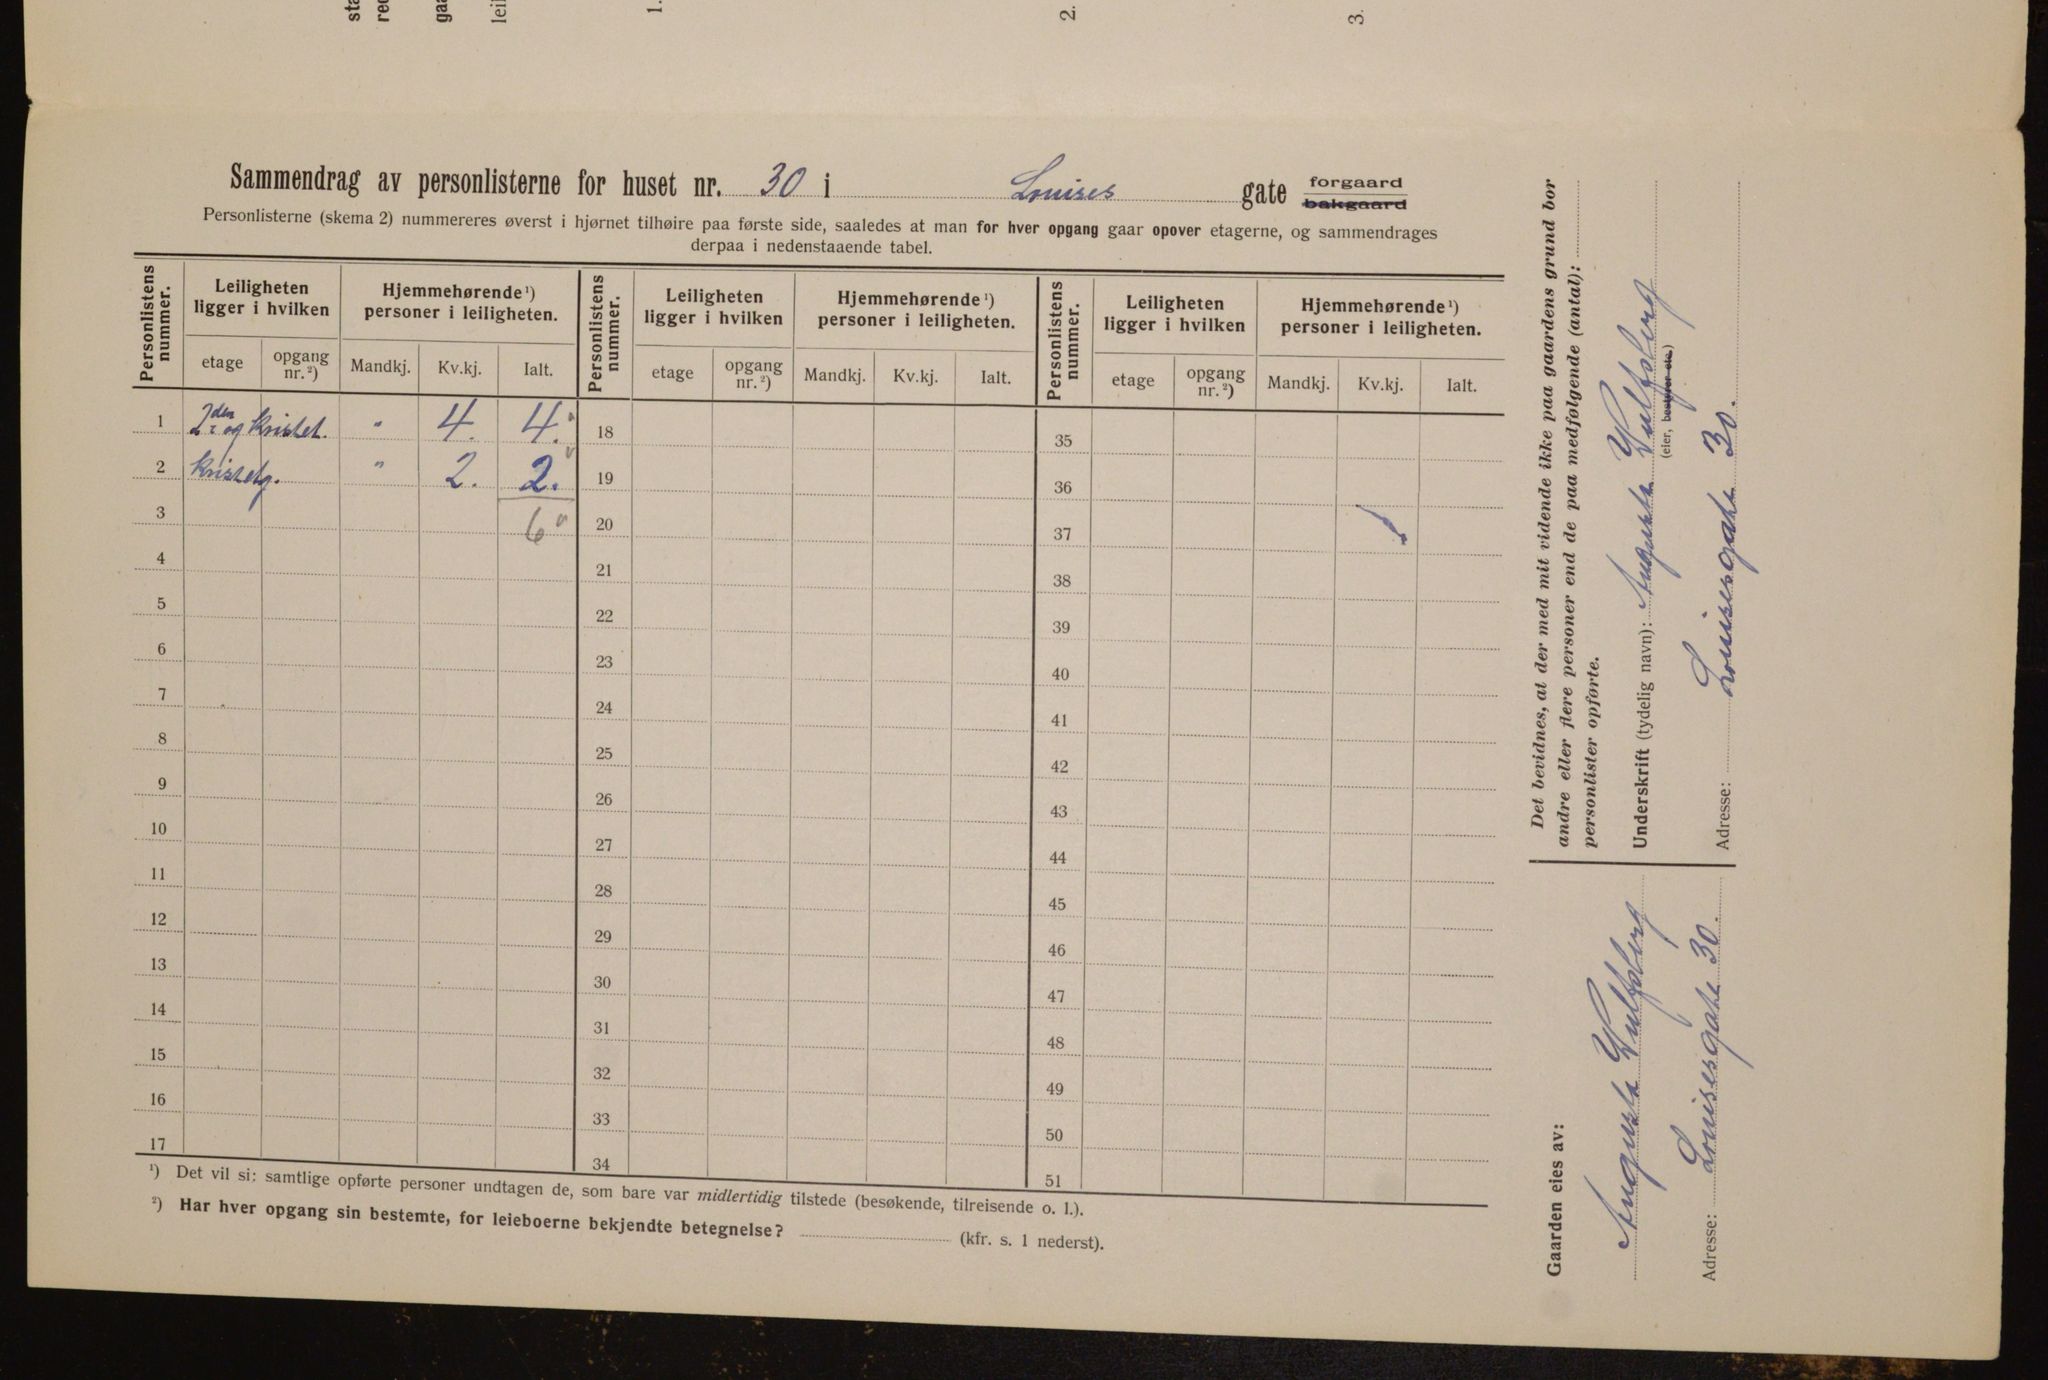 sta
red
gaa
lei
1.
2.
3.
Sammendrag av personlisterne for huset nr. 30 i Louises gate forgaard
bakgaard
Personlisterne (skema 2) nummereres øverst i hjørnet tilhøire paa første side, saaledes at man for hver opgang gaar opover etagerne, og sammendrages
derpaa i nedenstaaende tabel.
Personlistens nummer. Leiligheten ligger i hvilken Hjemmehørende¹) personer i leiligheten. Personlistens nummer. Leiligheten ligger i hvilken Hjemmehørende¹) personer i leiligheten. Personlistens nummer. Leiligheten ligger i hvilken Hjemmehørende¹) personer i leiligheten.
etage opgang nr.²) Mandkj. Kv.kj. Ialt. etage opgang nr.²) Mandkj. Kv.kj. Ialt. etage opgang nr.²) Mandkj. Kv.kj. Ialt.
1 2den og Kvistet. " 4. 4. 18 35
2 " 2. 2. 19 36
3 6 20 37
4 21 38
5 22 39
6 23 40
7 24 41
8 25 42
9 26 43
10 27 44
11 28 45
12 29 46
13 30 47
14 31 48
15 32 49
16 33 50
17 34 51
¹) Det vil si: samtlige opførte personer undtagen de, som bare var midlertidig tilstede (besøkende, tilreisende o. l.).
²) Har hver opgang sin bestemte, for leieboerne bekjendte betegnelse? (kfr. s. 1 nederst).
Det bevidnes, at der med mit vidende ikke paa gaardens grund bor
andre eller flere personer end de paa medfølgende (antal):
personlister opførte.
Underskrift (tydelig navn): Augusta Wulfsberg
(eier, bestyrer etc.)
Adresse: Louisesgate 30.
Gaarden eies av:
Augusta Wulfsberg
Adresse: Louisesgate 30.